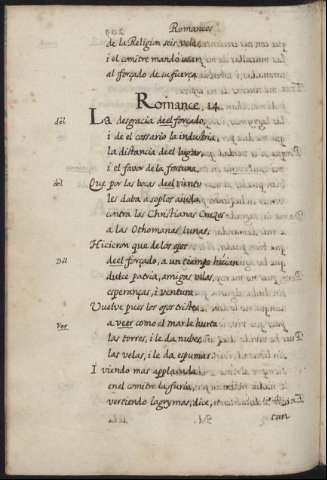 Romances
de la Religion seis velas
i el comitre mandó usar
al forçado de su fuerça.
Romance. 14.
La desgracia deel forçado,
i de el cossario la industria,
la distancia de el lugar,
i el favor de la fortuna,
Que por las bocas deel viento
les daba a soplos aiuda
contra las Christianas Cruzes
a las Othomanas lunas,
Hicieron que de los ojos
deel forçado, a un tiempo huian
dulce patria, amigas velas,
esperanças, i ventura.
Vuelve pues los ojos triste
a veer como el mar le hurta
las torres, i le da nubes,
las velas, i le da espumas.
I viendo mas applacada
en el comitre la furia,
vertiendo lagrymas, dice,
tan
dél
del
Dél
Ver